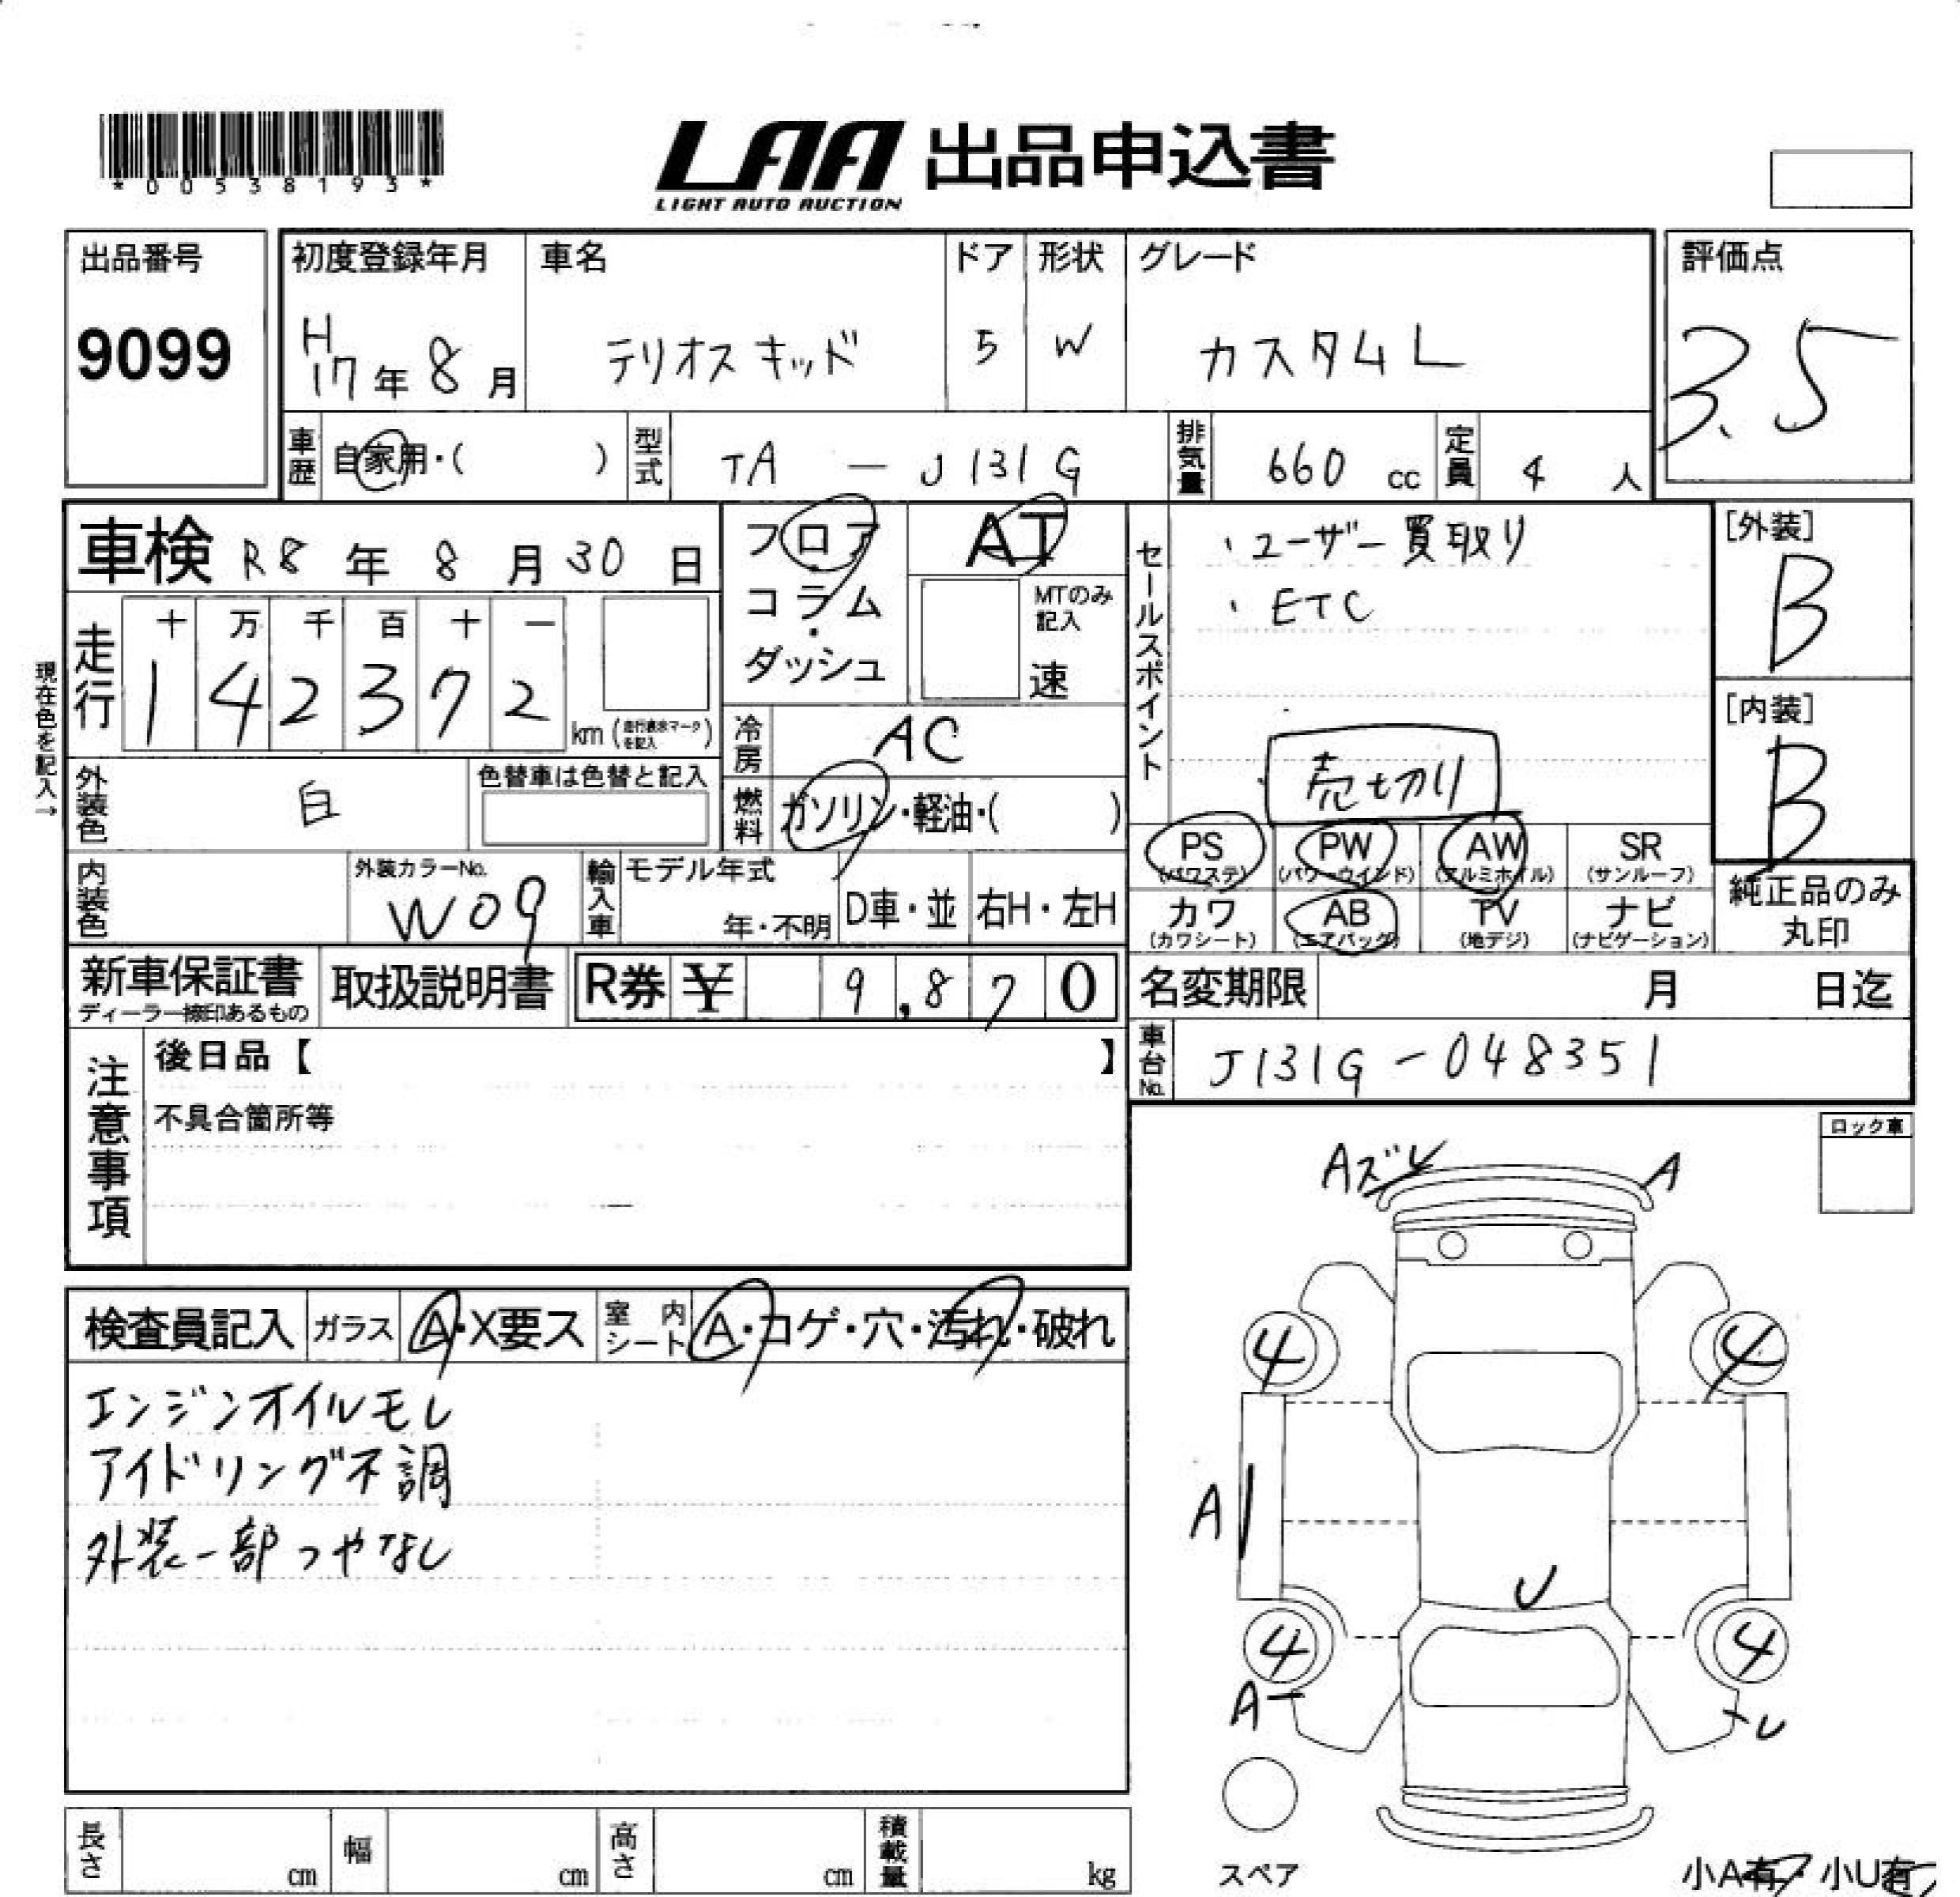 *00538193*
LAA 出品申込書
LIGHT AUTO AUCTION
出品番号
9099
初度登録年月
H17年8月
車名
テリオスキッド
ドア
5
形状
W
グレード
カスタムL
評価点
3.5
車歴 自家用・( )
型式 TA — J131G
排気量 660 cc
定員 4 人
車検 R8 年 8 月 30 日
走行
十 万 千 百 十 一
1 4 2 3 7 2
km (走行表示マークを記入)
現在色を記入→
外装色 白
色替車は色替と記入
内装色
外装カラーNo.
W09
フロア
・
コラム
・
ダッシュ
AT
MTのみ記入
速
冷房 AC
燃料 ガソリン・軽油・( )
輸入車
モデル年式
年・不明
D車・並
右H・左H
セールスポイント
・ユーザー買取り
・ETC
売切り
PS (パワステ)
PW (パワーウインド)
AW (アルミホイル)
SR (サンルーフ)
カワ (カワシート)
AB (エアバッグ)
TV (地デジ)
ナビ (ナビゲーション)
[外装]
B
[内装]
B
純正品のみ
丸印
新車保証書
ディーラー捺印あるもの
取扱説明書
R券 ¥ 9,870
名変期限 月 日迄
車台No. J131G-048351
注意事項
後日品【 】
不具合箇所等
ロック車
検査員記入
ガラス A・X要ス
室内シート A・コゲ・穴・汚れ・破れ
エンジンオイルモレ
アイドリング不調
外装一部つやなし
Aズレ
A
4
4
A
U
4
4
A
U
スペア
長さ cm
幅 cm
高さ cm
積載量 kg
小A有・小U有